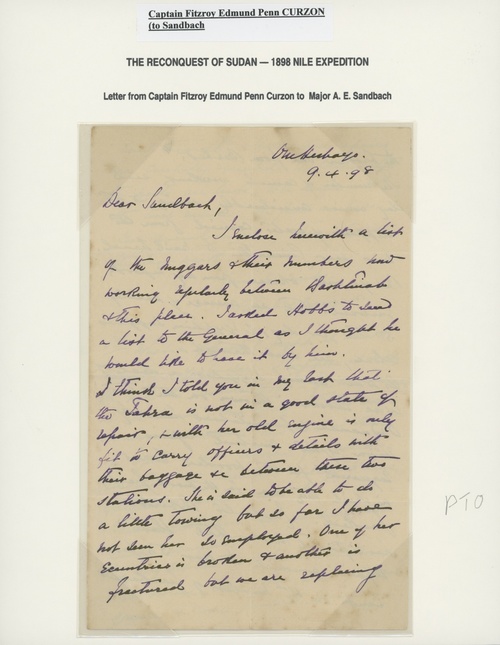 Captain Fitzroy Edmund Penn CURZON
(to Sandbach
THE RECONQUEST OF SUDAN — 1898 NILE EXPEDITION
Letter from Captain Fitzroy Edmund Penn Curzon to Major A. E. Sandbach
9.4.98
Dear Sandbach,
I enclose herewith a list
of the nuggars & their numbers now
working regularly between
& this place. I asked Hobbs to send
a list to the General as I thought he
would like to have it by him.
I think I told you in my last that
the Tahra is not in a good state of
repair, & with her old engine is only
fit to carry officers & details with
their baggage &c between these two
stations. She is said to be able to do
a little towing but so far I have
not seen her so employed. One of her
Eccentrics is broken & another is
fractured but we are replacing
PTO